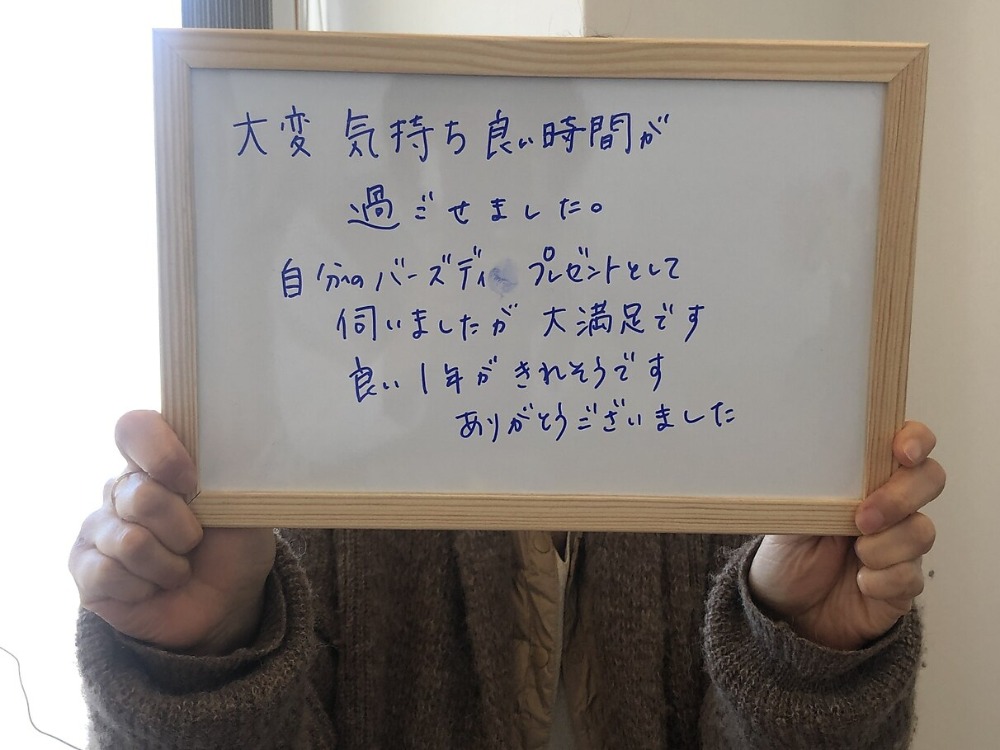 大変 気持ち良い時間が
過ごせました。
自分へのバーズディ プレゼントとして
伺いましたが 大満足です
良い1年がきれそうです
ありがとうございました